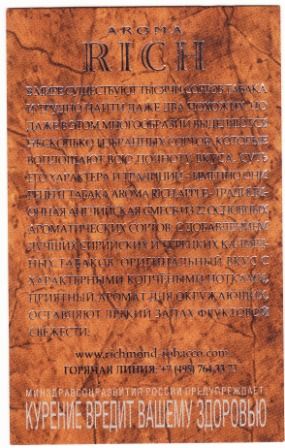 AROMA
RICH
В МИРЕ СУЩЕСТВУЮТ ТЫСЯЧИ СОРТОВ ТАБАКА
И ТРУДНО НАЙТИ ДАЖЕ ДВА ПОХОЖИХ. НО
ДАЖЕ В ЭТОМ МНОГООБРАЗИИ ВЫДЕЛЯЕТСЯ
НЕСКОЛЬКО ИЗБРАННЫХ СОРТОВ, КОТОРЫЕ
ВОПЛОЩАЮТ ВСЮ ПОЛНОТУ ВКУСА,
ЕГО ХАРАКТЕРА И ТРАДИЦИЙ. ИМЕННО ОНИ
ТАБАКА AROMA RICH APPLE - ТРАДИЦИ-
ОННАЯ АНГЛИЙСКАЯ СМЕСЬ ИЗ 22 ОСНОВНЫХ
АРОМАТИЧЕСКИХ СОРТОВ С ДОБАВЛЕНИЕМ
ЛУЧШИХ СИРИЙСКИХ И ТУРЕЦКИХ
ТАБАКОВ. ОРИГИНАЛЬНЫЙ ВКУС С
ХАРАКТЕРНЫМИ КОПЧЕНЫМИ НОТКАМИ И
ПРИЯТНЫЙ АРОМАТ ДЛЯ ОКРУЖАЮЩИХ
ОСТАВЛЯЮТ ЛЕГКИЙ ЗАПАХ ФРУКТОВОЙ
СВЕЖЕСТИ.
www.richmond-tobacco.com
ГОРЯЧАЯ ЛИНИЯ: +7 (495) 764 33 73
МИНЗДРАВСОЦРАЗВИТИЯ РОССИИ ПРЕДУПРЕЖДАЕТ:
КУРЕНИЕ ВРЕДИТ ВАШЕМУ ЗДОРОВЬЮ